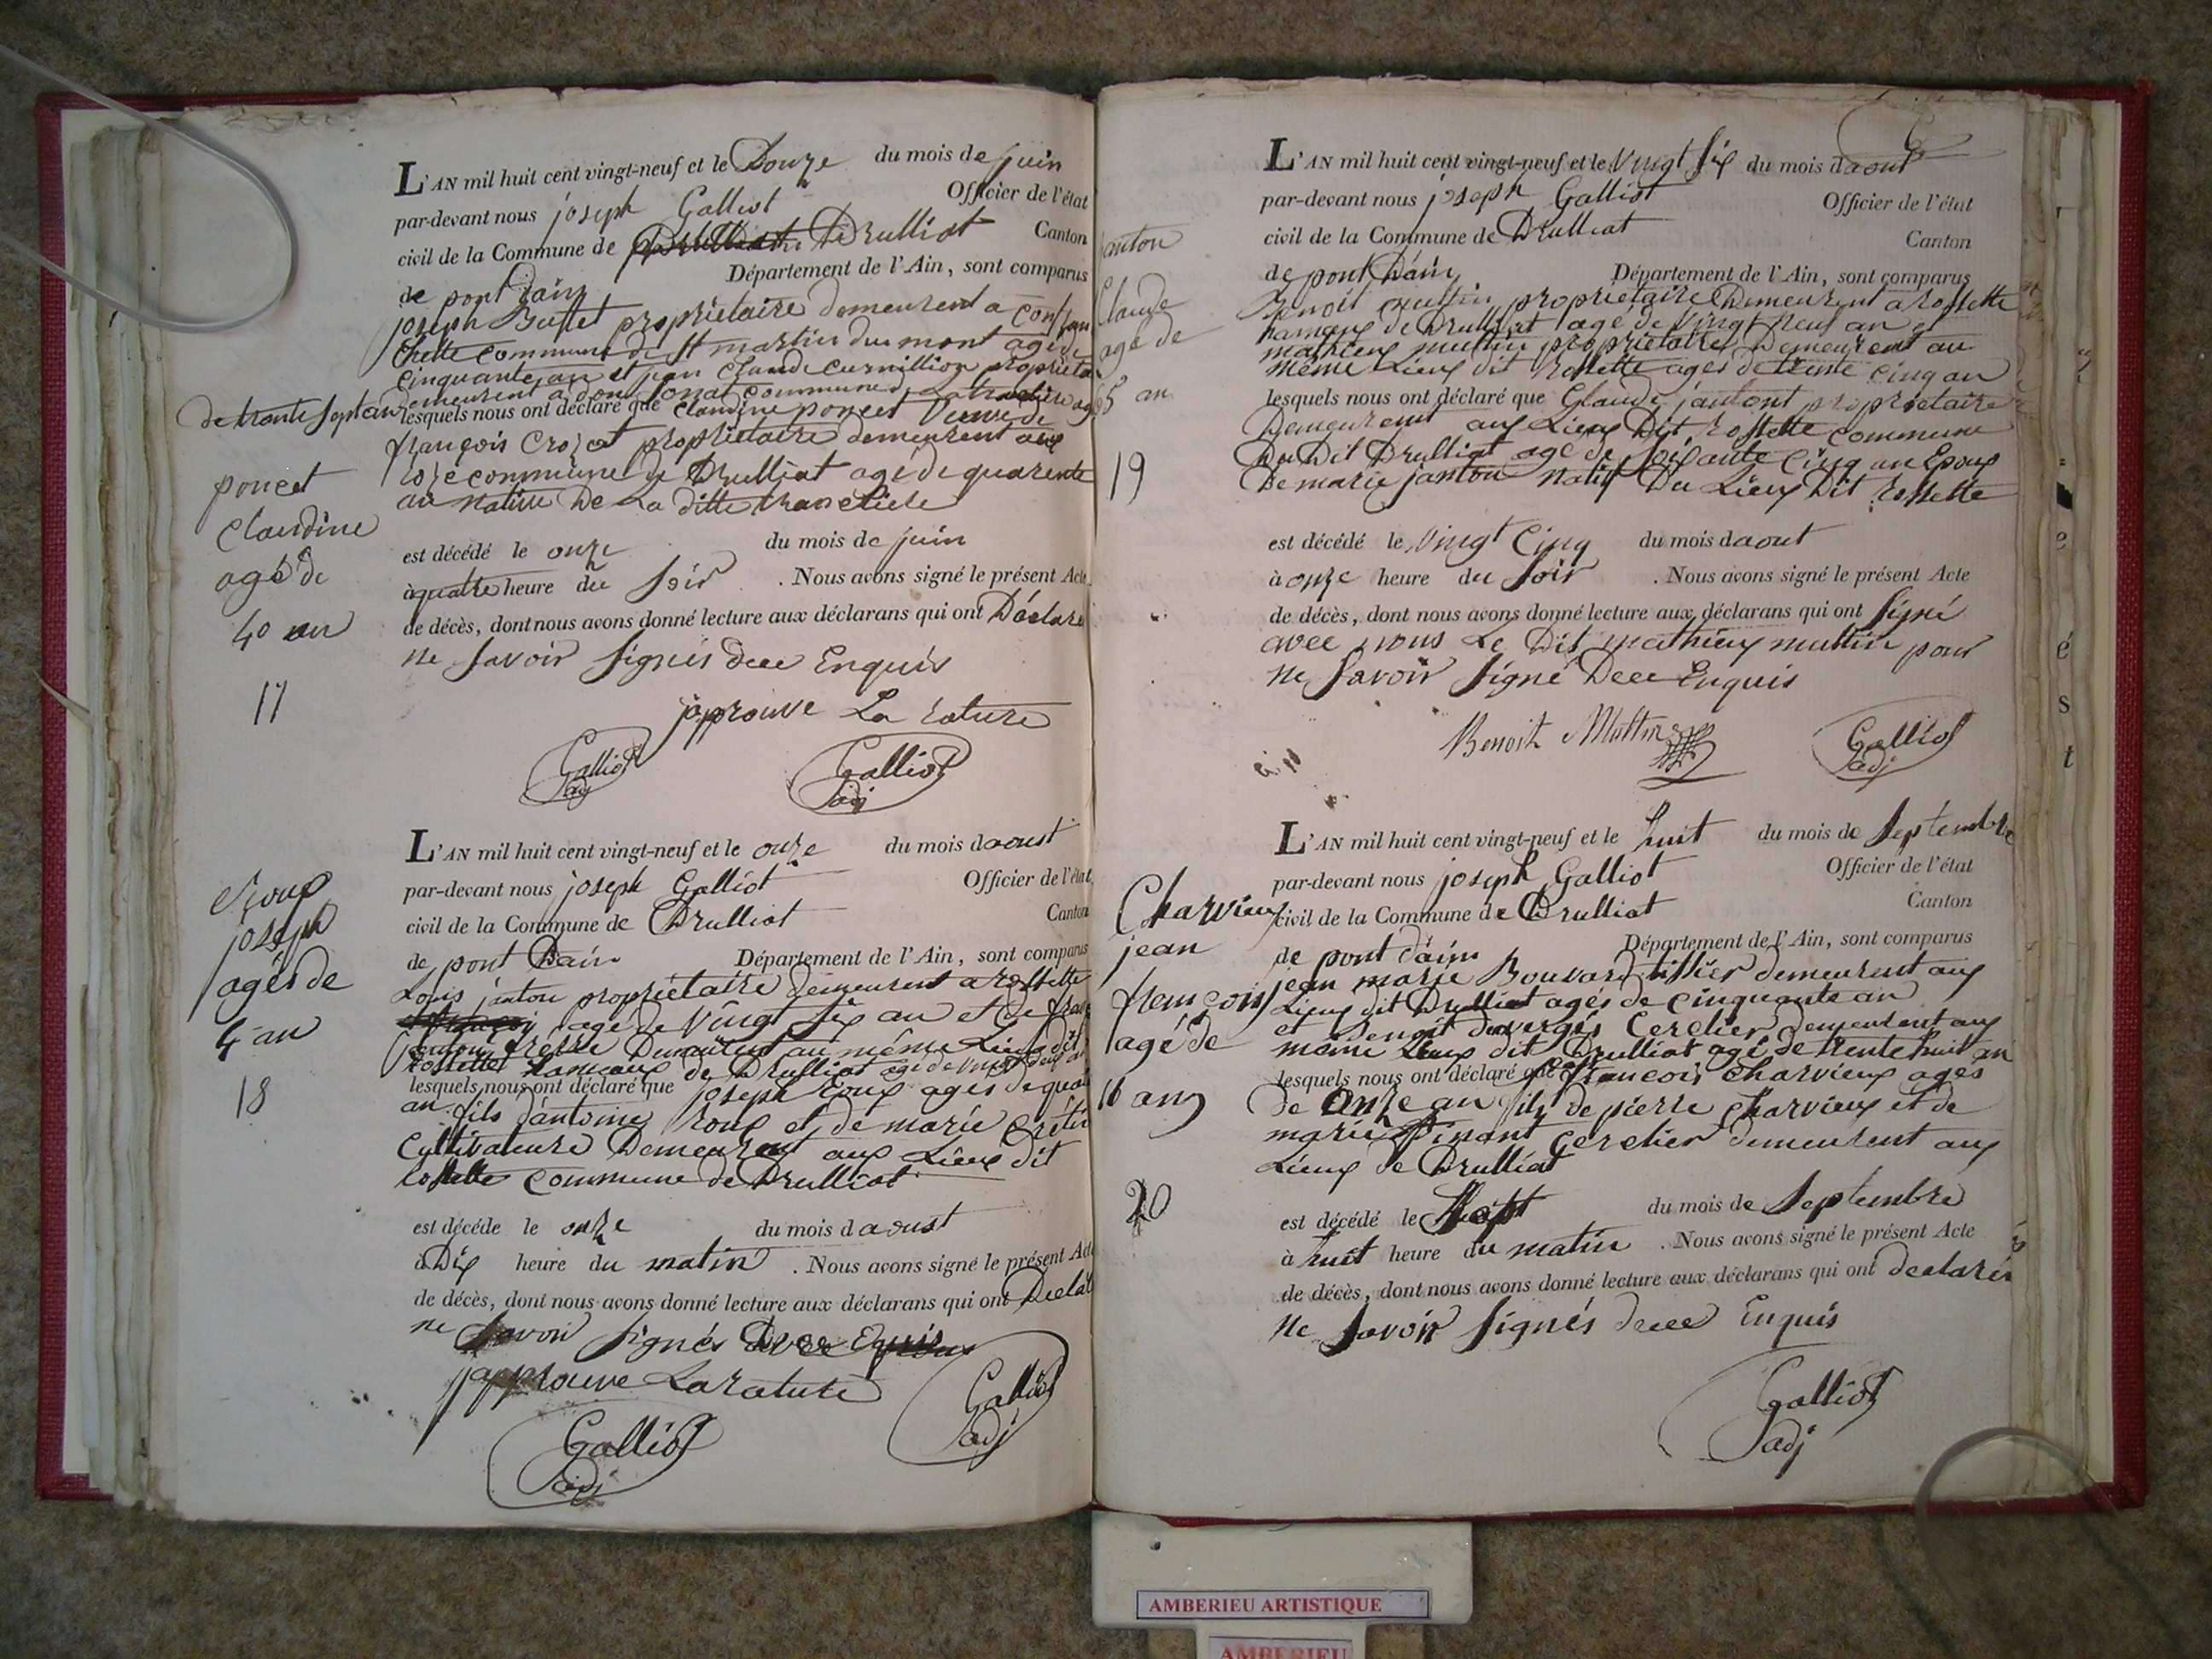 L'AN mil huit cent vingt-neuf et le Douze du mois de juin
par-devant nous joseph Galliot Officier de l'état
civil de la Commune de Drulliat Canton
de pont Dain Département de l'Ain, sont comparus
joseph Buffet propriétaire demeurent a
commune de St martin du mont agé de
cinquante an et jean Claude Curnillion proprieta
demeurent a commune de
de trante sept an lesquels nous ont déclaré que Claudine poncet veuve de
françois Crozet propriétaire demeurent aux
commune de Drulliat agé de quarente
an native De La ditte
est décédé le onze du mois de juin
à quatre heure du soir . Nous avons signé le présent Acte
de décès, dont nous avons donné lecture aux déclarans qui ont Déclaré
ne savoir signés Dece Enquis
japprouve La rature
Galliot adj
Galliot adj
poncet
Claudine
agé de
40 an
17
L'AN mil huit cent vingt-neuf et le onze du mois daoust
par-devant nous joseph Galliot Officier de l'état
civil de la Commune de Drulliat Canton
de pont Dain Département de l'Ain, sont comparus
Louis janton propriétaire demeurent a rossette
agé de vingt six an et de
janton demeurent au même Lieu dit
rossette hameaux de Drulliat agé de vingt deux an
lesquels nous ont déclaré que joseph roux agés de quat
an fils d'antoine roux et de marie
Cultivateure Demeurent aux Lieux dit
rossette commune de Drulliat
est décéde le onze du mois daoust
à Dix heure du matin . Nous avons signé le présent Acte
de décès, dont nous avons donné lecture aux déclarans qui ont Declar
ne savoir signés Dece
japprouve La rature
Galliot adj
Galliot adj
roux
joseph
agés de
4 an
18
L'AN mil huit cent vingt-neuf et le vingt six du mois daout
par-devant nous joseph Galliot Officier de l'état
civil de la Commune de Drulliat Canton
de pont Dain Département de l'Ain, sont comparus
Benoit muttin propriétaire Demeurent a rossette
hameaux de Drulliat agé de vingt neuf an et
mathieux muttin propriétaire Demeurent au
même Lieux dit rossette agés de trente cinq an
lesquels nous ont déclaré que Glaude jantont propriétaire
Demeurent aux Lieux Dit rossette commune
Du Dit Drulliat agé de soisante cinq an Epoux
De marie janton natif Du Lieux Dit rossette
est décédé le vingt Cinq du mois daout
à onze heure du soir . Nous avons signé le présent Acte
de décès, dont nous avons donné lecture aux déclarans qui ont signé
avec nous Le Dit mathieux muttin pour
ne savoir signé Dece Enquis
Benoit Muttin
Galliot adj
anton
Claude
agé de
65 an
19
L'AN mil huit cent vingt-neuf et le huit du mois de Septembre
par-devant nous joseph Galliot Officier de l'état
civil de la Commune de Drulliat Canton
de pont dain Département de l'Ain, sont comparus
jean marie Bouvard tissier demeurent aux
Lieux dit Drulliat agés de cinquante an
et Benoit duvergés Cerclier demeurent aux
même Lieux dit Drulliat agé de trente huit an
lesquels nous ont déclaré que françois Charvieux agés
de onze an fils de pierre Charvieux et de
marie Pinant Cerclier demeurent aux
Lieux de Drulliat
est décédé le Sept du mois de Septembre
à huit heure du matin . Nous avons signé le présent Acte
de décès, dont nous avons donné lecture aux déclarans qui ont declarés
ne savoir signés dece Enquis
Galliot adj
Charvieux
jean
françois
agé de
20
AMBERIEU ARTISTIQUE
AMBERIEU